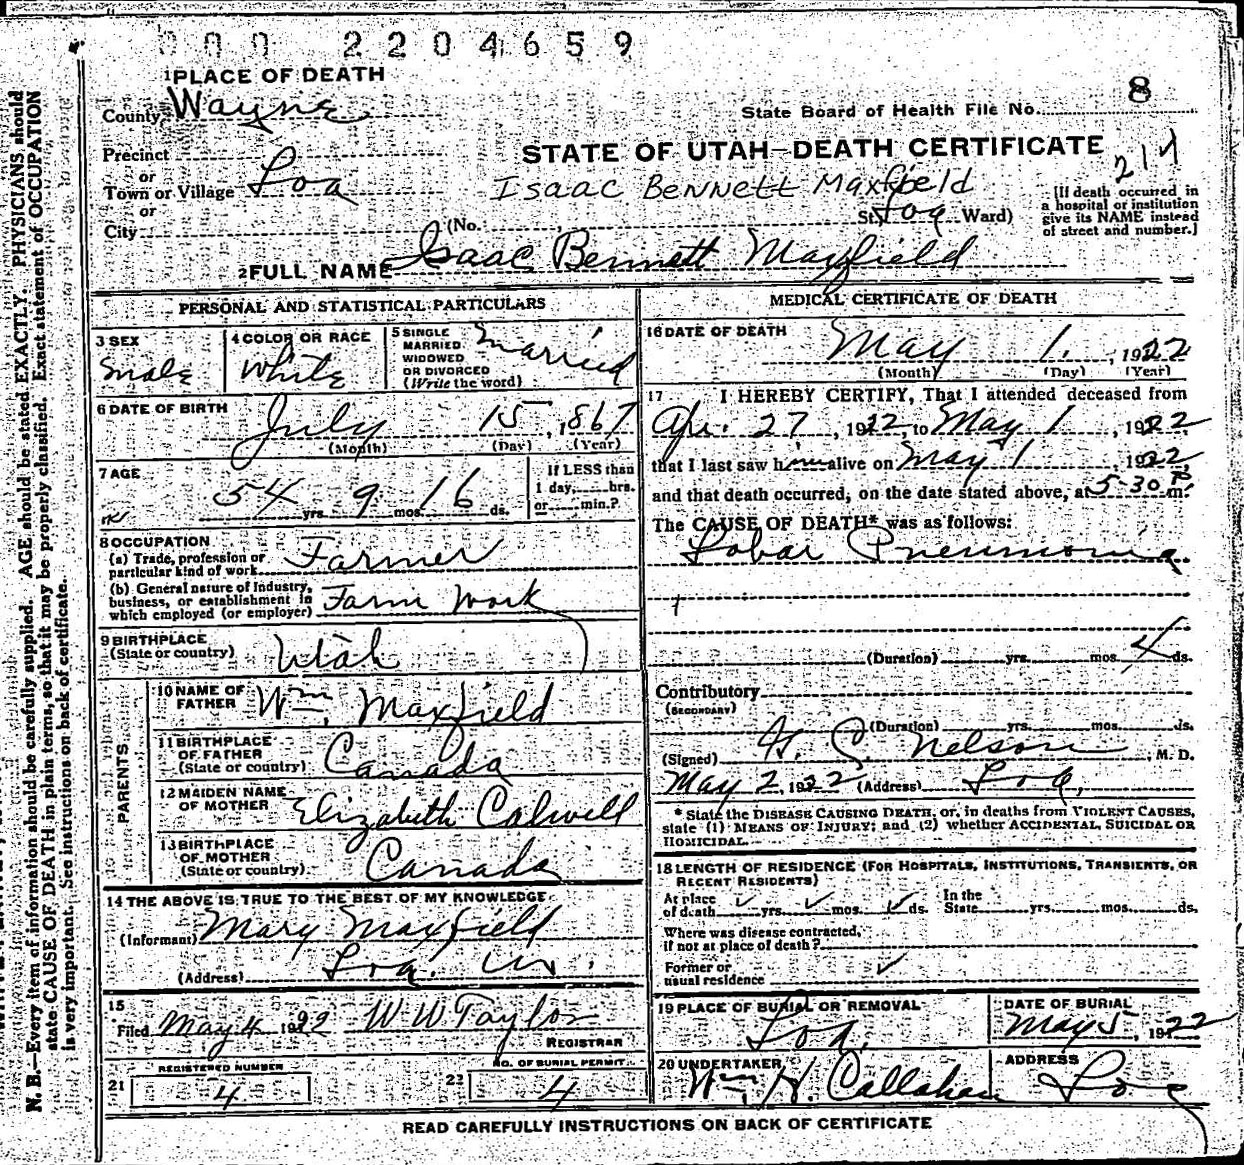 0 0 0 2 2 0 4 6 5 9
1 PLACE OF DEATH
County Wayne
State Board of Health File No. 8
Precinct
or
Town or Village Loa
or
City
STATE OF UTAH—DEATH CERTIFICATE
214
Isaac Bennett Maxfield
(No. St. Loa Ward)
[If death occurred in
a hospital or institution
give its NAME instead
of street and number.]
2 FULL NAME Isaac Bennett Maxfield
PERSONAL AND STATISTICAL PARTICULARS
3 SEX
Male
4 COLOR OR RACE
White
5 SINGLE
MARRIED
WIDOWED
OR DIVORCED
(Write the word)
Married
6 DATE OF BIRTH
July 15, 1867
(Month) (Day) (Year)
7 AGE
54 yrs. 9 mos. 16 ds.
If LESS than
1 day, hrs.
or min.?
8 OCCUPATION
(a) Trade, profession or
particular kind of work Farmer
(b) General nature of Industry,
business, or establishment in
which employed (or employer) Farm Work
9 BIRTHPLACE
(State or country) Utah
PARENTS
10 NAME OF
FATHER Wm. Maxfield
11 BIRTHPLACE
OF FATHER
(State or country) Canada
12 MAIDEN NAME
OF MOTHER Elizabeth Calwell
13 BIRTHPLACE
OF MOTHER
(State or country) Canada
14 THE ABOVE IS TRUE TO THE BEST OF MY KNOWLEDGE
(Informant) Mary Maxfield
(Address) Loa,
15
Filed May 4 1922 W W Taylor
REGISTRAR
REGISTERED NUMBER
21 4
NO. OF BURIAL PERMIT
22 4
MEDICAL CERTIFICATE OF DEATH
16 DATE OF DEATH
May 1, 1922
(Month) (Day) (Year)
17 I HEREBY CERTIFY, That I attended deceased from
Apr. 27, 1922, to May 1, 1922,
that I last saw him alive on May 1, 1922,
and that death occurred, on the date stated above, at 5-30 P m.
The CAUSE OF DEATH* was as follows:
Lobar Pneumonia
(Duration) yrs. mos. 4 ds.
Contributory
(SECONDARY)
(Duration) yrs. mos. ds.
(Signed) Nelson M. D.
May 2, 1922 (Address) Loa,
* State the DISEASE CAUSING DEATH, or, in deaths from VIOLENT CAUSES,
state (1) MEANS OF INJURY; and (2) whether ACCIDENTAL, SUICIDAL OR
HOMICIDAL.
18 LENGTH OF RESIDENCE (FOR HOSPITALS, INSTITUTIONS, TRANSIENTS, OR
RECENT RESIDENTS)
At place
of death yrs. mos. ds. In the
State yrs. mos. ds.
Where was disease contracted,
if not at place of death?
Former or
usual residence
19 PLACE OF BURIAL OR REMOVAL
Loa,
DATE OF BURIAL
May 5, 1922
20 UNDERTAKER
Wm. H. Callahan
ADDRESS
Loa
READ CAREFULLY INSTRUCTIONS ON BACK OF CERTIFICATE
N. B.—Every item of information should be carefully supplied. AGE should be stated EXACTLY. PHYSICIANS should
state CAUSE OF DEATH in plain terms, so that it may be properly classified. Exact statement of OCCUPATION
is very important. See instructions on back of certificate.